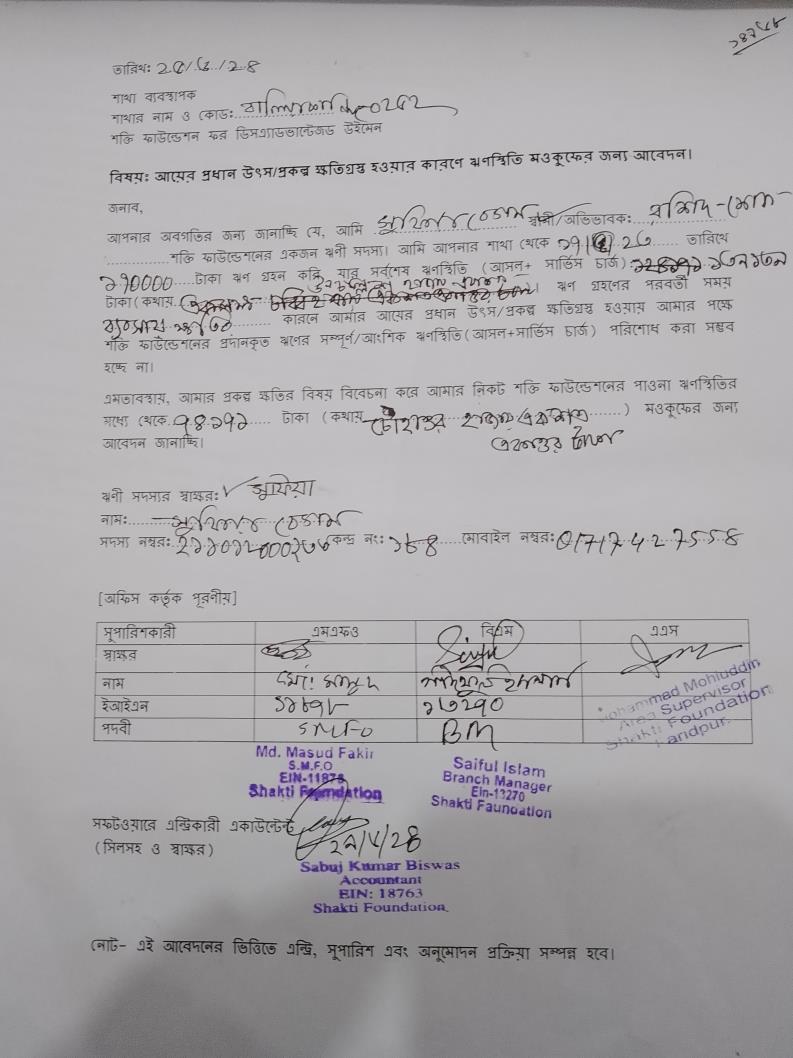 তারিখ:
শাখা ব্যবস্থাপক
শাখার নাম ও কোড: 0252
শক্তি ফাউন্ডেশন ফর ডিসএ্যাডভান্টেজড উইমেন
বিষয়: আয়ের প্রধান উৎস/প্রকল্প ক্ষতিগ্রস্ত হওয়ার কারণে ঋণস্থিতি মওকুফের জন্য আবেদন।
জনাব,
আপনার অবগতির জন্য জানাচ্ছি যে, আমি সুফিয়া বেগম স্বামী/অভিভাবক:
শক্তি ফাউন্ডেশনের একজন ঋনী সদস্য। আমি আপনার শাখা থেকে তারিখে
১৭০০০০ টাকা ঋণ গ্রহন করি, যার সর্বশেষ ঋণস্থিতি (আসল+ সার্ভিস চার্জ)
টাকা (কথায়। ঋণ গ্রহনের পরবর্তী সময়
ব্যবসায় ক্ষতির কারনে আমার আয়ের প্রধান উৎস/প্রকল্প ক্ষতিগ্রস্ত হওয়ায় আমার পক্ষে
শক্তি ফাউন্ডেশনের প্রদানকৃত ঋণের সম্পূর্ন/আংশিক ঋণস্থিতি(আসল+সার্ভিস চার্জ) পরিশোধ করা সম্ভব
হচ্ছে না।
এমতাবস্থায়, আমার প্রকল্প ক্ষতির বিষয় বিবেচনা করে আমার নিকট শক্তি ফাউন্ডেশনের পাওনা ঋণস্থিতির
মধ্যে থেকে ৭৪১৭১ টাকা (কথায় চৌহাত্তর হাজার একশত) মওকুফের জন্য
একাত্তর টাকা
আবেদন জানাচ্ছি।
ঋনী সদস্যের স্বাক্ষর: সুফিয়া
নাম: সুফিয়া বেগম
সদস্য নম্বর: কেন্দ্র নং: ১৬৪ মোবাইল নম্বর: 01717427558
[অফিস কর্তৃক পূরনীয়]
সুপারিশকারী এমএফও বিএম এএস
স্বাক্ষর
নাম মোঃ মাসুদ সাইফুল ইসলাম
ইআইএন ১১৮৭৮ ১৩২৭০
পদবী SMFO BM
Mohammad Mohiuddin
Area Supervisor
Shakti Foundation
Chandpur.
Md. Masud Fakir
S.M.F.O
EIN-11878
Shakti Foundation
Saiful Islam
Branch Manager
Ein-13270
Shakti Faundation
সফটওয়ারে এন্ট্রিকারী একাউন্টেন্ট
(সিলসহ ও স্বাক্ষর)
Sabuj Kumar Biswas
Accountant
EIN: 18763
Shakti Foundation
নোট- এই আবেদনের ভিত্তিতে এন্ট্রি, সুপারিশ এবং অনুমোদন প্রক্রিয়া সম্পন্ন হবে।